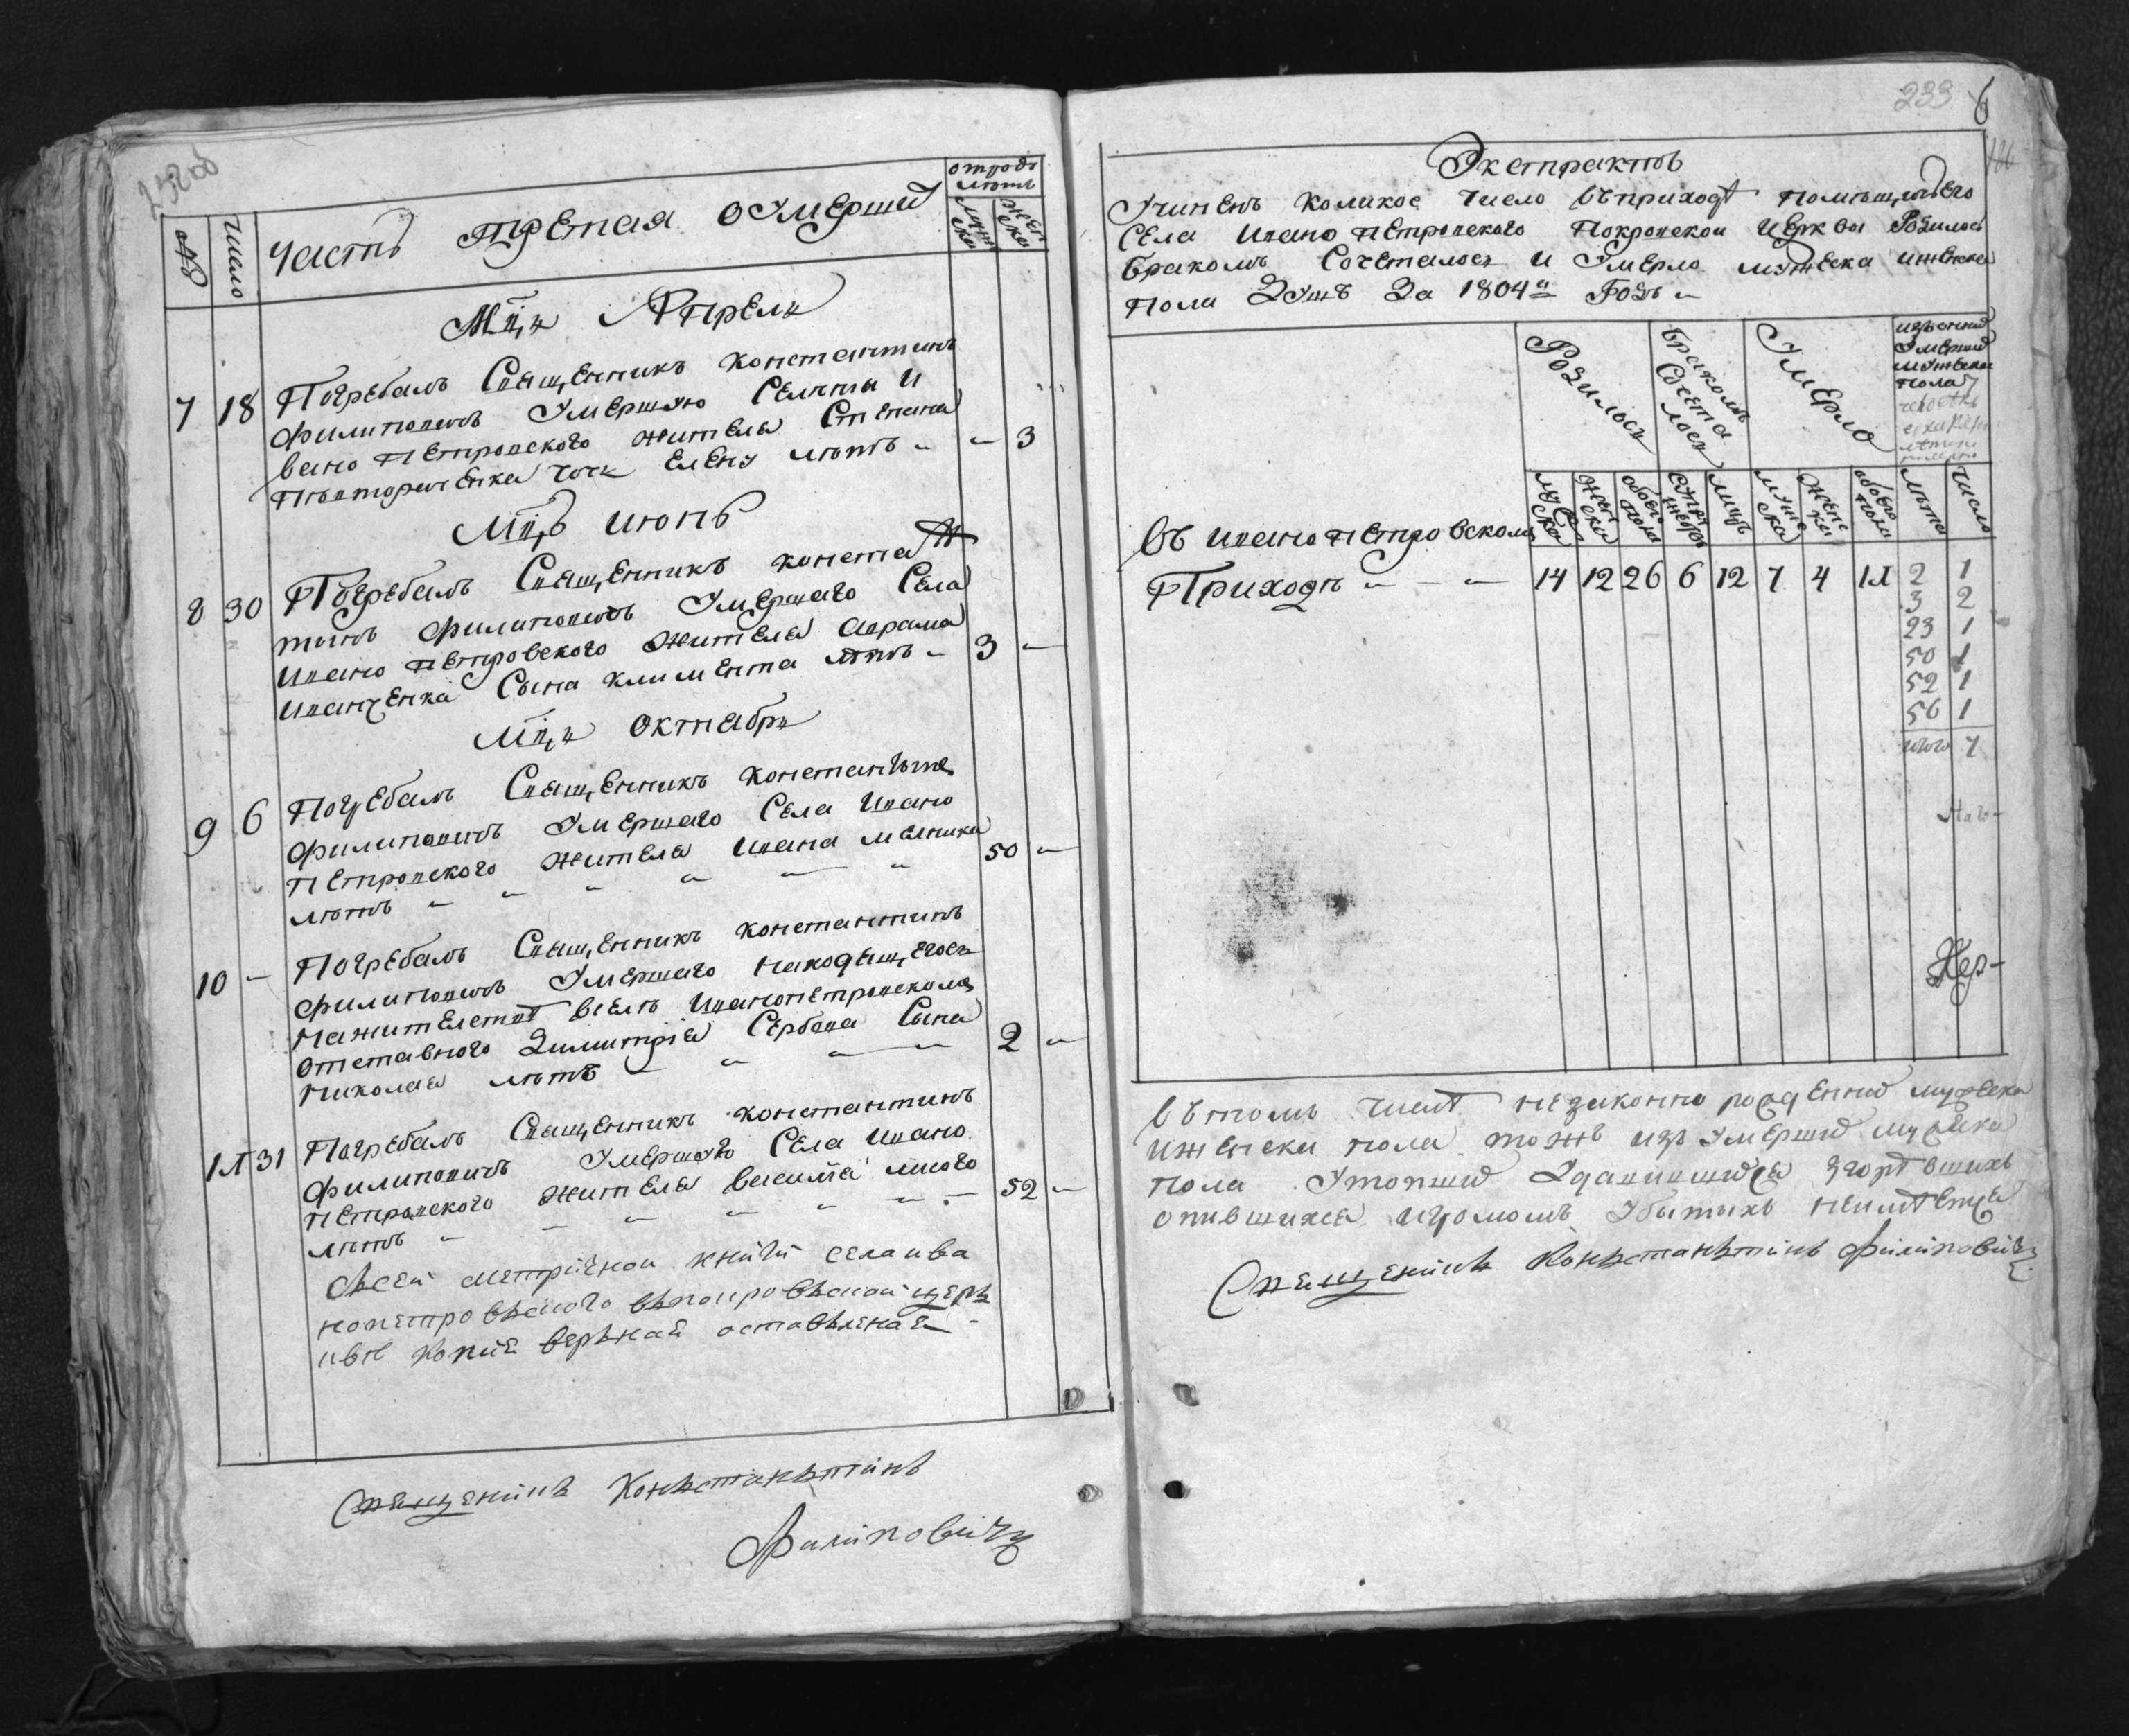 232об
отроду
лѣтъ
число
муж
ска
жен
ска
часть третая о умерших
Мц,а Апреля
7 18 Погребалъ Священникъ Константинъ
Филиповичъ умершую Селита И
вано Петровского жителя Степана
дочь Елену лѣтъ - - 3
Мц,ъ июнь
8 30 Погребалъ Священникъ Конста
тинъ Филиповичъ умершаго Села
Ивано Петровского жителя Аврама
Иванченка Сына Климента лѣтъ - 3 -
Мц,а Октября
9 6 Погребалъ Священникъ Константинъ
Филиповичъ умершаго Села Ивано
Петровского жителя Ивана Мелника
лѣтъ - - - - - 50 -
10 - Погребалъ Священникъ Константинъ
Филиповичъ умершаго находящ,егося
на жителствѣ в селѣ Иванопетровскомъ
отставного Димитрія Сербена Сына
Николая лѣтъ - - - - 2 -
11 31 Погребалъ Священникъ Константинъ
Филиповичъ умершаго Села Ивано
Петровского жителя Василія
лѣтъ - - - - - - 52 -
Ссей метрiчной книги села ива
нопетровъского въ покровъской церъ
квѣ копiя веръная оставълена
Священикъ Конъстанътинъ
Филиповичъ
233 6
Экстрактъ
Учиненъ коликое число въ приходѣ помѣщичьего
Села Ивано Петровского Покровской церкви родилось
бракомъ Сочеталось и умерло мужеска и женска
пола душъ За 1804й Годъ -
Родилось
бракомъ
Сочета
лось
Умерло
изъ оныхъ
умерших
мужеска
пола
муж
ска
жен
ска
обоего
пола
лицъ
муж
ска
женс
ка
обоего
пола
лѣта
число
Въ Ивано Петровскомъ
Приходѣ - - - 14 12 26 6 12 7 4 11 2 1
3 2
23 1
50 1
52 1
56 1
итого 7
въ томъ числѣ незаконно рожденных мужеска
и женска пола тожъ изъ умерших мужска
пола утопших удавившихся згорѣвшихъ
опившихся и громомъ убитыхъ неимѣетца
Священикъ Конъстанътинъ Филиповичъ